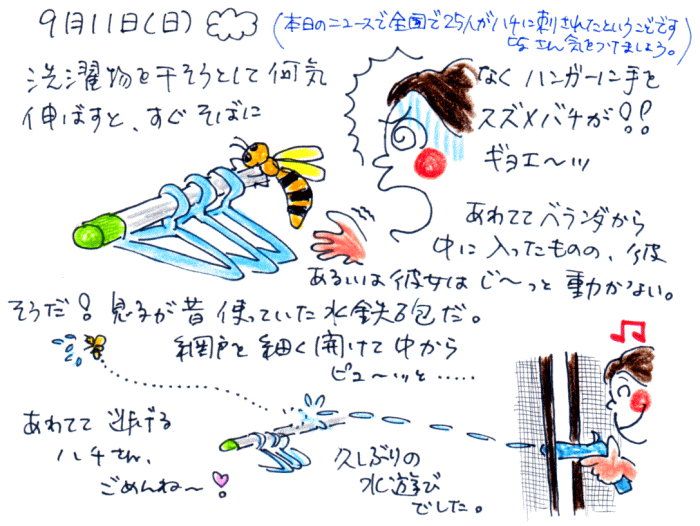 9月11日(日)
(本日のニュースで全国で25人がハチに刺されたということです
皆さん気をつけましょう。)
洗濯物を干そうとして何気
なくハンガーに手を
伸ばすと、すぐそばに
スズメバチが!!
ギョエ〜ッ
あわててベランダから
中に入ったものの、彼
あるいは彼女はじ〜っと動かない。
そうだ!息子が昔使っていた水鉄砲だ。
網戸を細く開けて中から
ピュ〜ッと……
あわてて逃げる
ハチさん、
ごめんね〜
久しぶりの
水遊び
でした。